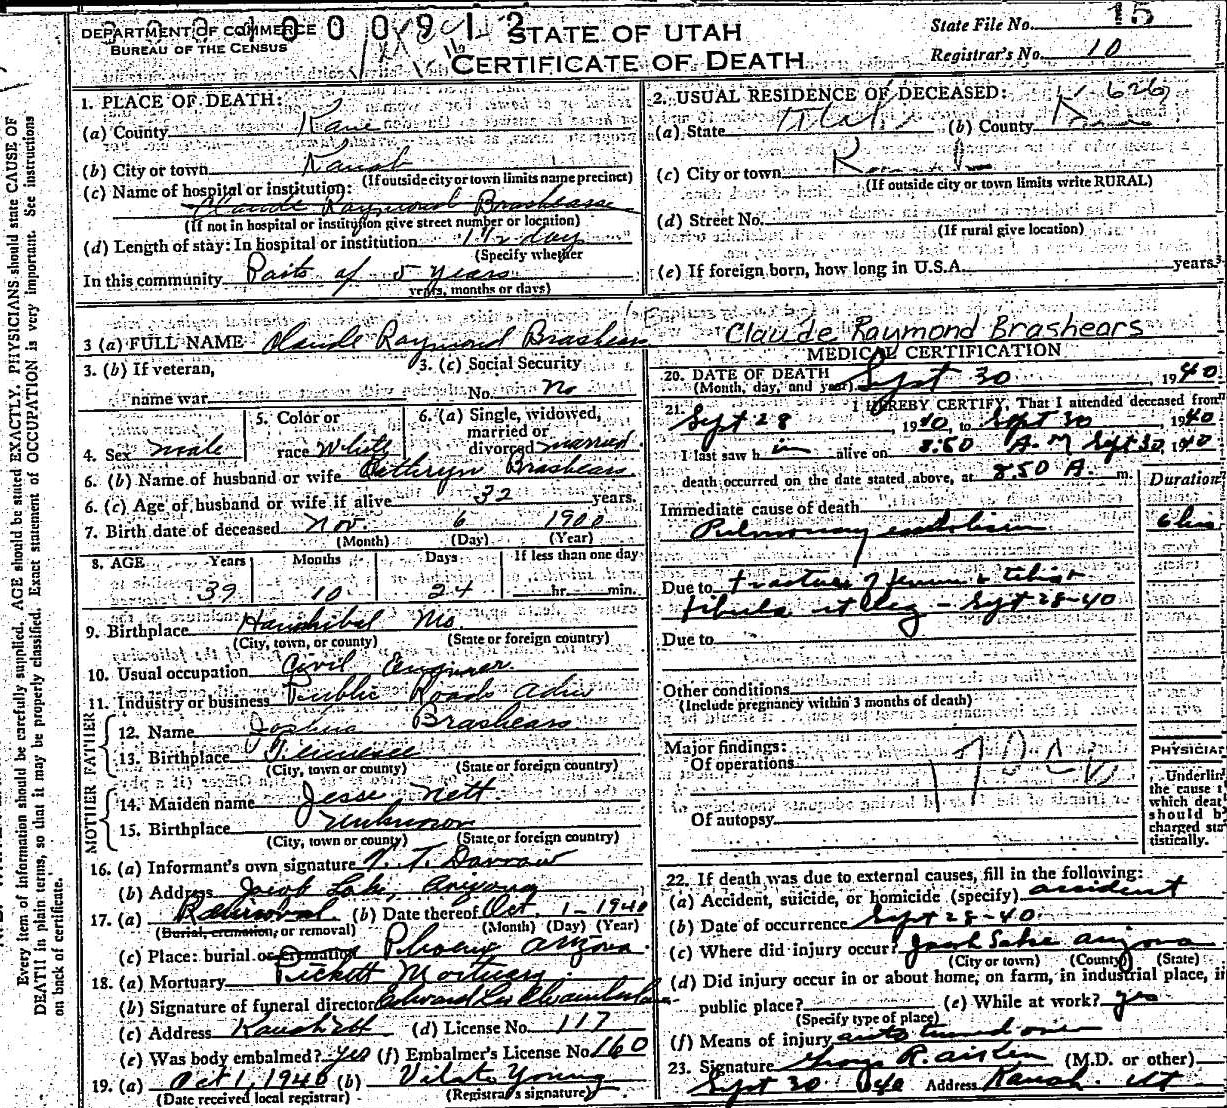 DEPARTMENT OF COMMERCE
BUREAU OF THE CENSUS
STATE OF UTAH
CERTIFICATE OF DEATH
State File No. 15
Registrar's No. 10
1. PLACE OF DEATH:
(a) County Kane
(b) City or town Kanab
(If outside city or town limits name precinct)
(c) Name of hospital or institution:
Claude Raymond Brashears
(If not in hospital or institution give street number or location)
(d) Length of stay: In hospital or institution 1 1/2 day
(Specify whether
In this community Parts of 5 years
years, months or days)
2. USUAL RESIDENCE OF DECEASED:
(a) State Utah (b) County
(c) City or town
(If outside city or town limits write RURAL)
(d) Street No.
(If rural give location)
(e) If foreign born, how long in U.S.A. years
3 (a) FULL NAME Claude Raymond Brashears
Claude Raymond Brashears
3. (b) If veteran,
name war
3. (c) Social Security
No. No
4. Sex male
5. Color or
race White
6. (a) Single, widowed,
married or
divorced married
6. (b) Name of husband or wife Kathryn Brashears
6. (c) Age of husband or wife if alive 32 years.
7. Birth date of deceased Nov. 6 1900
(Month) (Day) (Year)
8. AGE Years Months Days If less than one day
39 10 24 hr. min.
9. Birthplace Hannibal Mo.
(City, town, or county) (State or foreign country)
10. Usual occupation Civil Engineer
11. Industry or business Public Roads Adm
FATHER
12. Name Joshua Brashears
13. Birthplace Tennessee
(City, town or county) (State or foreign country)
MOTHER
14. Maiden name Jesse Nett
15. Birthplace Unknown
(City, town or county) (State or foreign country)
16. (a) Informant's own signature N. T. Darrow
(b) Address Jacob Lake, Arizona
17. (a) Removal (b) Date thereof Oct. 1-1940
(Burial, cremation, or removal) (Month) (Day) (Year)
(c) Place: burial or cremation Phoenix Arizona
18. (a) Mortuary Tickett Mortuary
(b) Signature of funeral director Edward Lee Chamberlain
(c) Address Kanab Utt (d) License No. 117
(e) Was body embalmed? Yes (f) Embalmer's License No 160
19. (a) Oct 1, 1940 (b) Vilate Young
(Date received local registrar) (Registrar's signature)
MEDICAL CERTIFICATION
20. DATE OF DEATH
(Month, day, and year) Sept 30, 1940
21. I HEREBY CERTIFY, That I attended deceased from
Sept 28, 1940, to Sept 30 1940
I last saw him alive on 8.50 A.M Sept 30, 1940
death occurred on the date stated above, at 8.50 A. m.
Duration
Immediate cause of death
Pulmonary embolism 6 hrs
Due to fracture of femur & tibia &
fibula rt leg - Sept 28-40
Due to
Other conditions
(Include pregnancy within 3 months of death)
Major findings:
Of operations
Of autopsy
PHYSICIAN
Underline
the cause
which death
should b
charged sta
tistically.
22. If death was due to external causes, fill in the following:
(a) Accident, suicide, or homicide (specify) accident
(b) Date of occurrence Sept 28-40
(c) Where did injury occur? Jacob Lake Arizona
(City or town) (County) (State)
(d) Did injury occur in or about home, on farm, in industrial place, in
public place? (e) While at work? yes
(Specify type of place)
(f) Means of injury auto turned over
23. Signature George R. Aiken (M.D. or other)
Sept 30 1940 Address Kanab. Ut
Every item of information should be carefully supplied. AGE should be stated EXACTLY. PHYSICIANS should state CAUSE OF
DEATH in plain terms, so that it may be properly classified. Exact statement of OCCUPATION is very important. See instructions
on back of certificate.